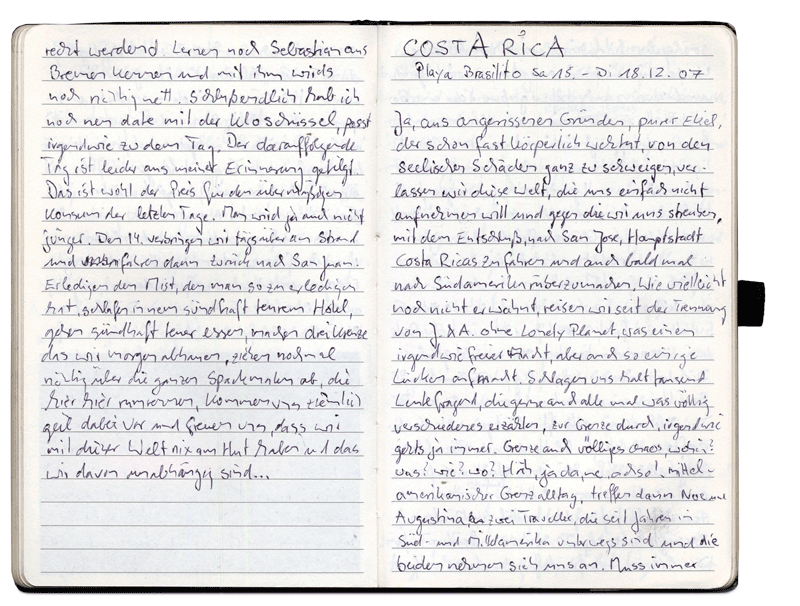 recht werdend. Lernen noch Sebastian aus
Bremen kennen und mit ihm wirds
noch richtig nett. Schlußendlich hab ich
noch nen date mit der Kloschüssel, passt
irgendwie zu dem Tag. Der darauffolgende
Tag ist leider aus meiner Erinnerung getilgt.
Das ist wohl der Preis für den übermäßigen
Konsum der letzten Tage. Man wird ja auch nicht
jünger. Den 14. verbringen wir tagsüber am Strand
und fahren dann zurück nach San Juan.
Erledigen den Mist, den man so zu erledigen
hat, schlafen in nem sündhaft teurem Hotel,
gehen sündhaft teuer essen, machen drei Kreuze
das wir morgen abhauen, ziehen nochmal
richtig über die ganzen Spackmaten ab, die
hier rumrennen, kommen uns ziemlich
geil dabei vor und freuen uns, dass wir
mit dieser Welt nix am Hut haben und das
wir davon unabhängig sind...
COSTA RICA
Playa Brasilito Sa 15. - Di 18.12.07
Ja, aus angerissenen Gründen, purer Ekel,
der schon fast körperlich wehtut, von den
seelischen Schäden ganz zu schweigen, ver-
lassen wir diese Welt, die uns einfach nicht
aufnehmen will und gegen die wir uns streuben,
mit dem Entschluß, nach San Jose, Hauptstadt
Costa Ricas zu fahren und auch bald mal
nach Südamerika rüberzumachen. Wie vielleicht
noch nicht erwähnt, reisen wir seit der Trennung
von J. & A. ohne Lonely Planet, was einen
irgendwie freier macht, aber auch so einige
Lücken aufmacht. Schlagen uns halt tausend
Leute fragend, die gerne auch alle mal was völlig
verschiedenes erzählen, zur Grenze durch, irgendwie
gehts ja immer. Grenze auch völliges chaos, wohin?
was? wie? wo? Häh, ja da, ne, achso!, mittel-
amerikanischer Grenzalltag, treffen dann Noe und
Augustina, zwei Traveller, die seit Jahren in
Süd- und Mittelamerika unterwegs sind und die
beiden nehmen sich uns an. Muss immer